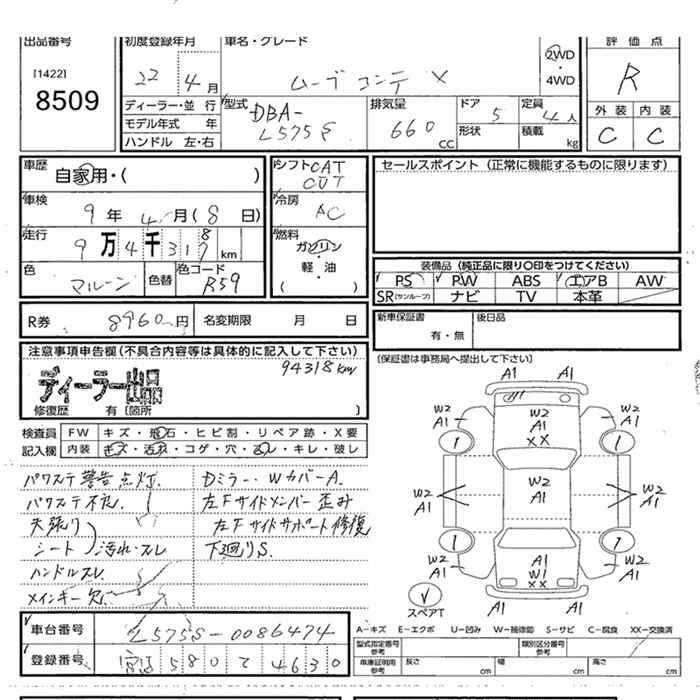 出品番号
[1422]
8509
初度登録年月
22 4 月
車名・グレード
ムーブコンテ X
2WD
・
4WD
評価点
R
外装 内装
C C
ディーラー・並行
モデル年式 年
ハンドル 左・右
型式
DBA-
L575S
排気量
660
CC
ドア 5
形状
定員 4人
積載 kg
車歴
自家用・( )
車検
9 年 4 月 ( 8 日)
走行
9 万 4 千 3 1 8 km
色
マルーン
色替
色コード
R59
シフト
AT
冷房
AC
燃料
ガソリン
・
軽・油
( )
R券 8960 円
名変期限 月 日
セールスポイント (正常に機能するものに限ります)
装備品 (純正品に限り〇印をつけてください)
PS PW ABS エアB AW
SR(サンルーフ) ナビ TV 本革
新車保証書
有・無
後日品
[保証書は事務局へ提出して下さい]
注意事項申告欄(不具合内容等は具体的に記入して下さい)
94318km
ディーラー出品
修復歴 有 [箇所 ]
検査員 FW キズ・飛石・ヒビ割・リペア跡・X要
記入欄 内装 キズ・汚れ・コゲ・穴・スレ・キレ・破レ
パワステ警告点灯.
パワステ不良.
天張り
シート 汚れ・スレ
ハンドルスレ.
メインキー欠.
Dミラー・WカバーA.
左Fサイドメンバー歪み
左Fサイドサポート修復
下廻りS.
A1 A1
W2
A1
XX
W2
A1
W2
A1
1 1
W2
A1
W2
A1
W2
A1
1 1
W2
A1
W2
A1
A1
W1
XX
A1 A1
スペアT
A-キズ E-エクボ U-凹み W-補修跡 S-サビ C-腐食 XX-交換済
車台番号 L575S-0086474
登録番号 宮崎 580 て 4630
型式指定番号
参考
類別区分番号
参考
車庫証明用
参考
長さ cm 幅 cm 高さ cm